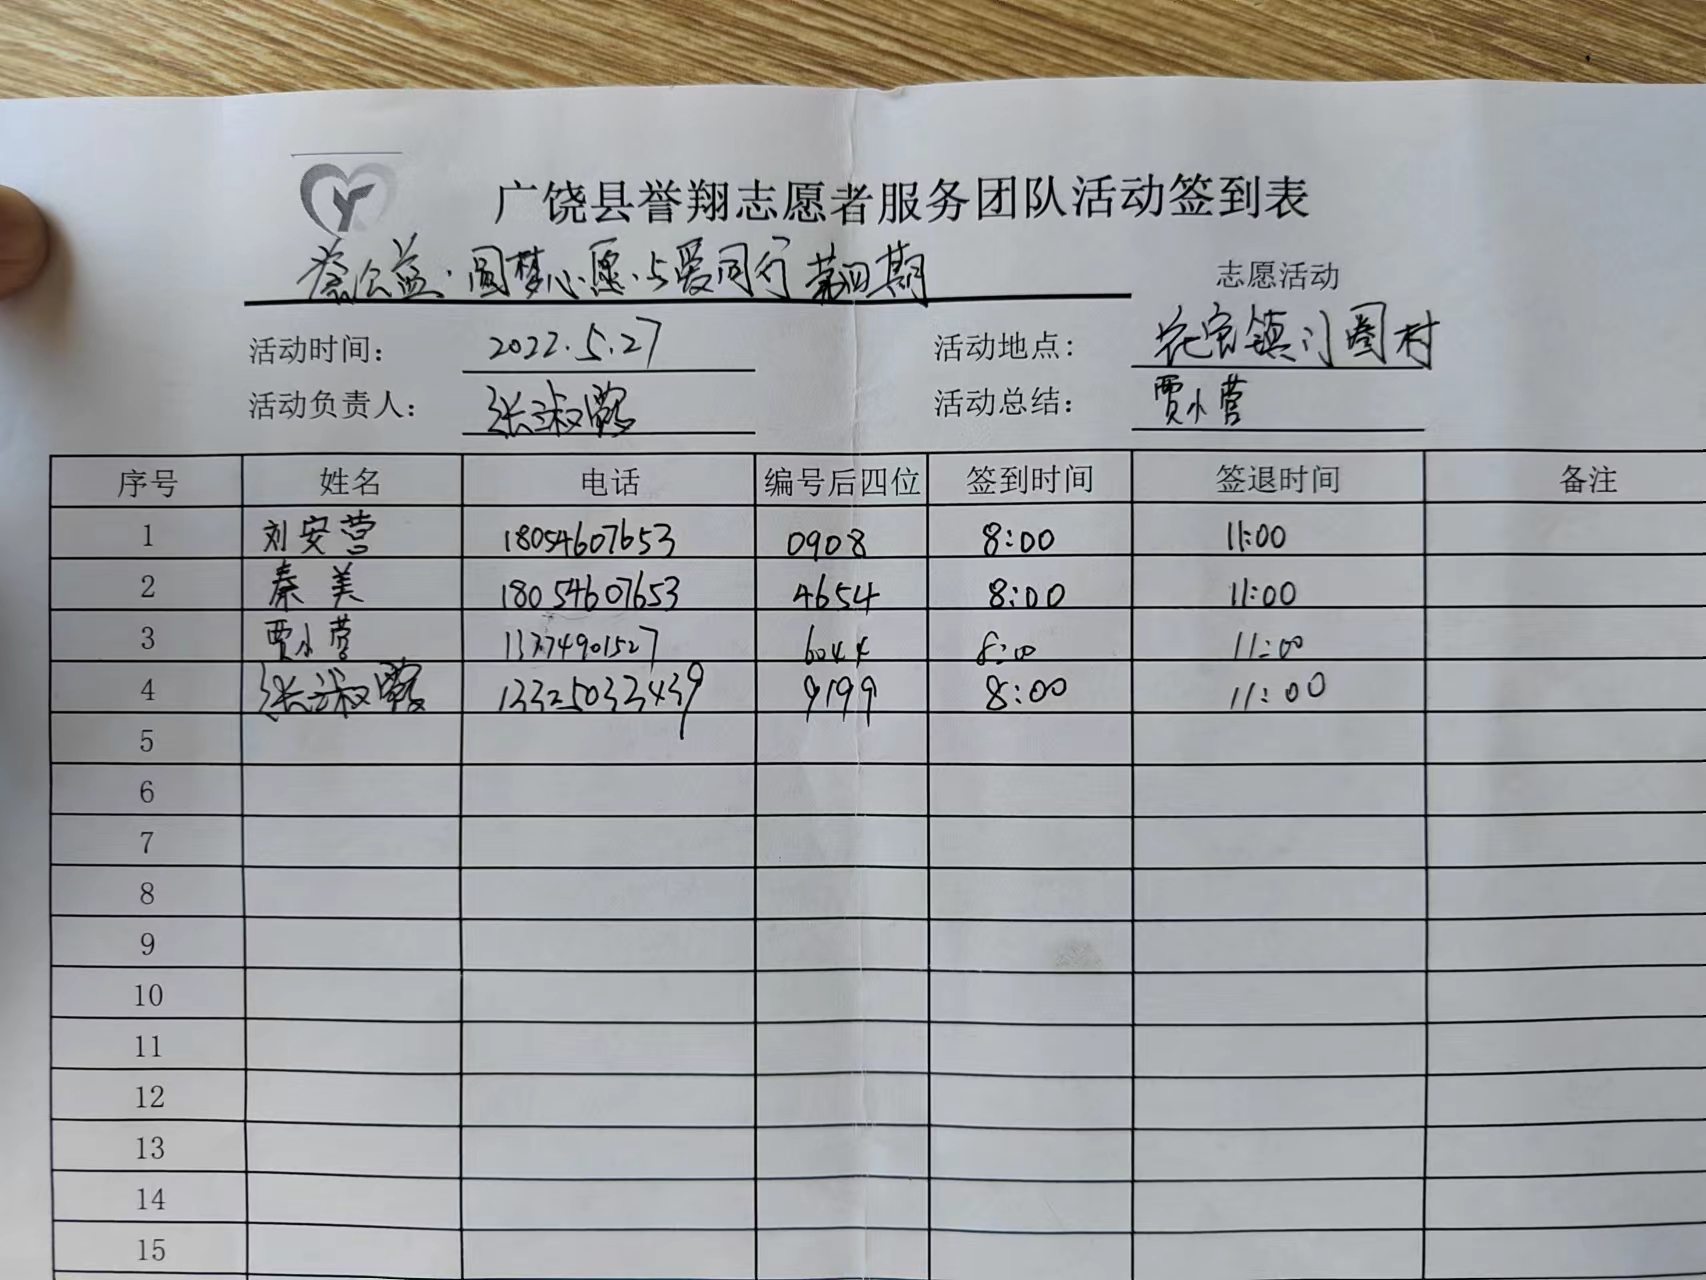 广饶县誉翔志愿者服务团队活动签到表
公益·圆梦心愿·与爱同行第四期 志愿活动
活动时间： 2022.5.27 活动地点： 花官镇门圈村
活动负责人： 张淑霞 活动总结： 贾小营
序号 姓名 电话 编号后四位 签到时间 签退时间 备注
1 刘安营 18054607653 0908 8:00 11:00
2 秦美 18054607653 4654 8:00 11:00
3 贾小营 6044 8:00 11:00
4 张淑霞 13325033439 9199 8:00 11:00
5
6
7
8
9
10
11
12
13
14
15